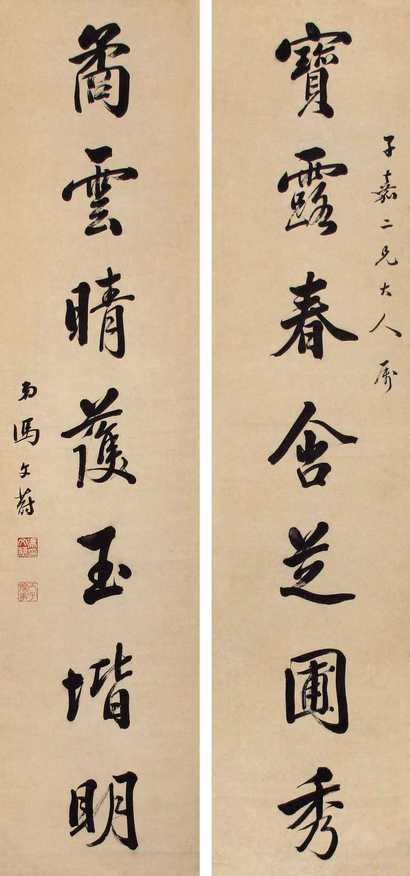 子嘉二兄大人属
寶露春含芝圃秀
矞雲晴護玉堦明
弟馮文蔚